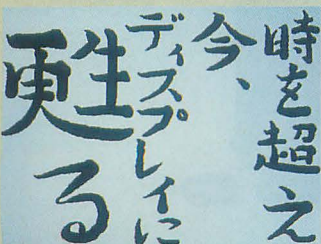 時を超え
今、
ディスプレイに
甦る